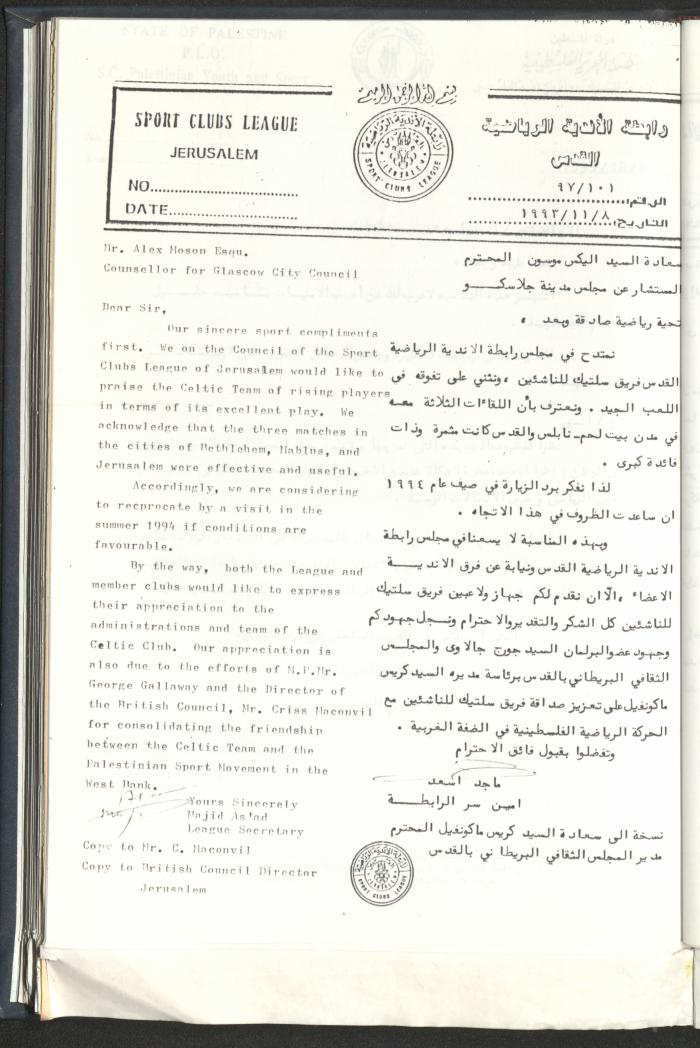 STATE OF PALESTINE
P.L.O.
بسم الله الرحمن الرحيم
SPORT CLUBS LEAGUE
JERUSALEM
NO.
DATE
رابطة الأندية الرياضية
القدس
الرقم: ٩٧/١٠١
التاريخ: ١٩٩٣/١١/٨
رابطة الأندية الرياضية
القدس
JERUSALEM
SPORT CLUBS LEAGUE
Mr. Alex Moson Esqu.
Counsellor for Glascow City Council
Dear Sir,
Our sincere sport compliments
first. We on the Council of the Sport
Clubs League of Jerusalem would like to
praise the Celtic Team of rising players
in terms of its excellent play. We
acknowledge that the three matches in
the cities of Bethlehem, Nablus, and
Jerusalem were effective and useful.
Accordingly, we are considering
to recprocate by a visit in the
summer 1994 if conditions are
favourable.
By the way, both the League and
member clubs would like to express
their appreciation to the
administrations and team of the
Celtic Club. Our appreciation is
also due to the efforts of M.P.Mr.
George Gallaway and the Director of
the British Council, Mr. Criss Maconvil
for consolidating the friendship
between the Celtic Team and the
Palestinian Sport Movement in the
West Bank.
Yours Sincerely
Majid As'ad
League Secretary
Copy to Mr. C. Maconvil
Copy to British Council Director
Jerusalem
سعادة السيد اليكس موسون المحترم
المستشار عن مجلس مدينة جلاسكو
تحية رياضية صادقة وبعد ،
نمتدح في مجلس رابطة الاندية الرياضية
القدس فريق سلتيك للناشئين ،ونثني على تفوقه في
اللعب الجيد . ونعترف بأن اللقاءات الثلاثة معه
في مدن بيت لحم-نابلس والقدس كانت مثمرة وذات
فائدة كبرى .
لذا نفكر برد الزيارة في صيف عام ١٩٩٤
ان ساعدت الظروف في هذا الاتجاه .
وبهذه المناسبة لا يسعنا في مجلس رابطة
الاندية الرياضية القدس ونيابة عن فرق الاندية
الاعضاء ،الّا ان نقدم لكم جهاز ولاعبين فريق سلتيك
للناشئين كل الشكر والتقدير والاحترام ونسجل جهودكم
وجهود عضو البرلمان السيد جورج جالاوى والمجلس
الثقافي البريطاني بالقدس برئاسة مديره السيد كريس
ماكونغيل على تعزيز صداقة فريق سلتيك للناشئين مع
الحركة الرياضية الفلسطينية في الضفة الغربية .
وتفضلوا بقبول فائق الاحترام
ماجد اسعد
امين سر الرابطة
نسخة الى سعادة السيد كريس ماكونغيل المحترم
مدير المجلس الثقافي البريطاني بالقدس
SPORT CLUBS LEAGUE